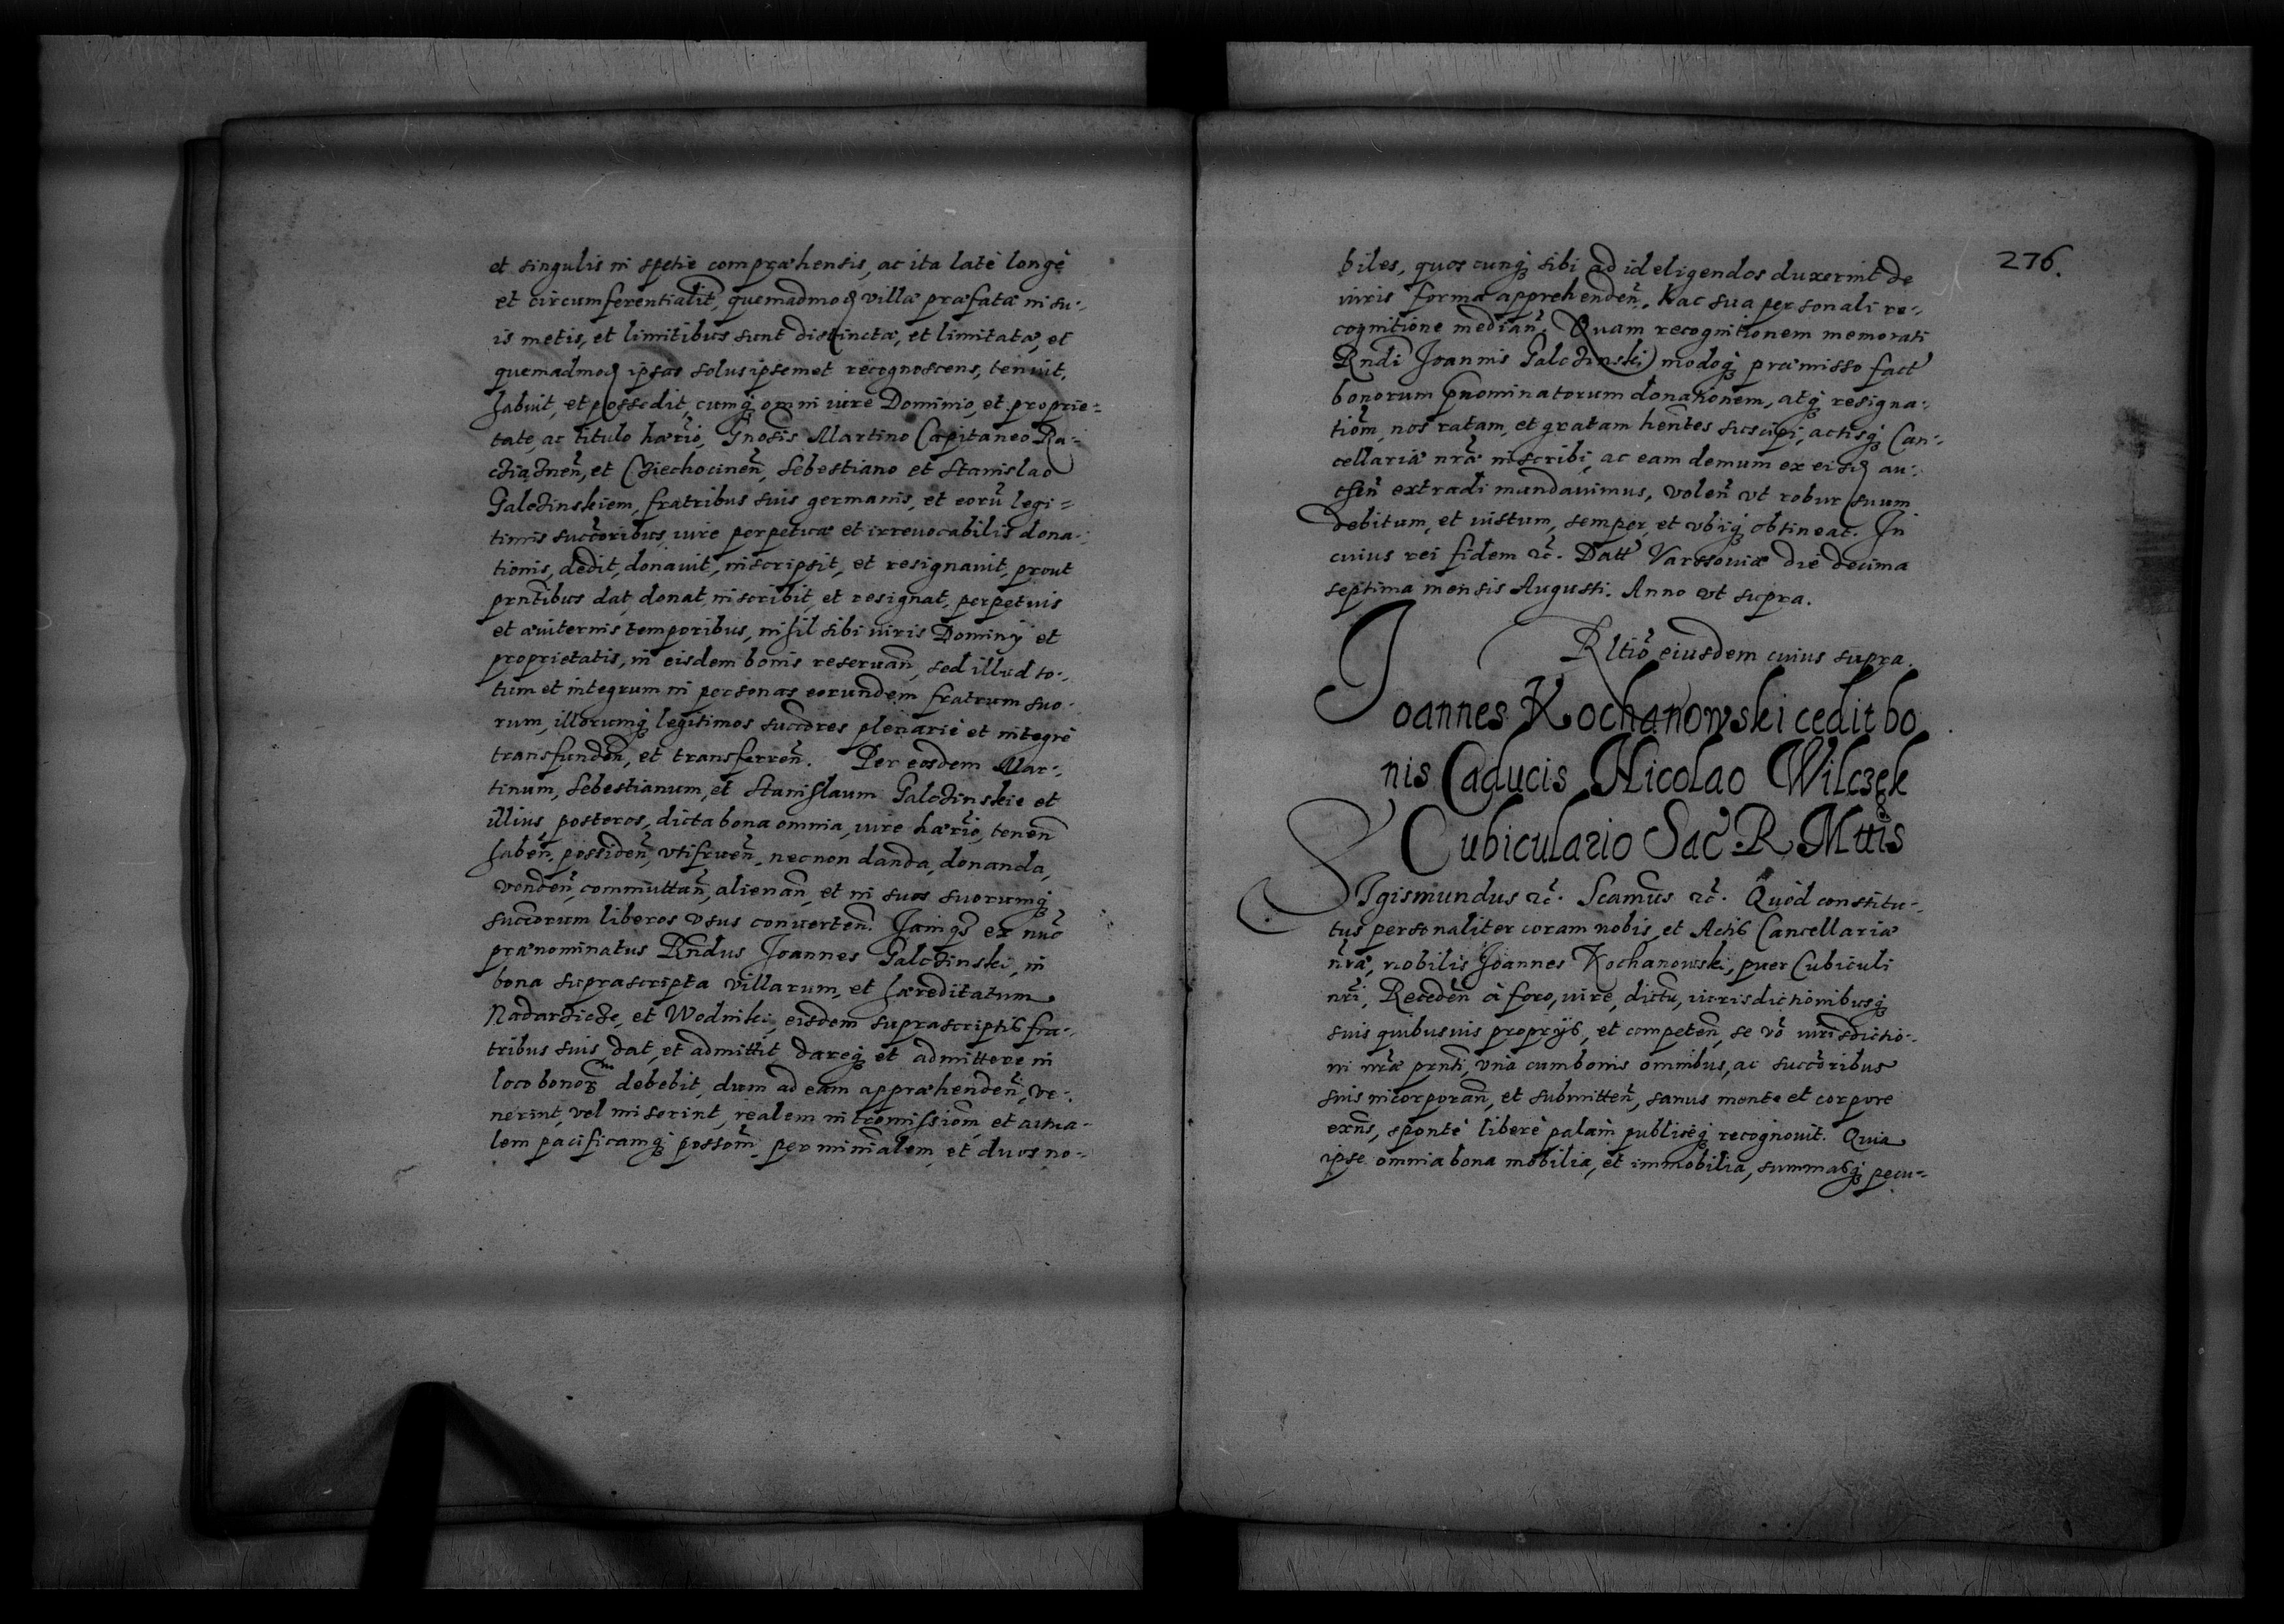 et singulis in spetie compræhensis, ac ita latè longè
et circumferentialit̃, quemadmoꝺ villæ præfatæ in su-
is metis, et limitibus sunt distinctæ, et limitatæ, et
quemadmoꝺ ipsas solus ipsemet recognoscens, tenuit,
habuit, et possedit, cumq; omni iure Dominio, et proprie-
tate, ac titulo hærio, Gnosis Martino Capitaneo Ra-
et Ciechocinen̄, Sebestiano et Stanislao
fratribus suis germanis, et eorū legi-
timis succoribus, iure perpetuæ et irreuocabilis dona-
tionis, dedit, donauit, inscripsit, et resignauit, prout
prntibus dat, donat, inscribit, et resignat, perpetuis
et æuiternis temporibus, nihil sibi iuris Dominÿ et
proprietatis, in eisdem bonis reseruan̄, sed illud to-
tum et integrum in personas eorundem fratrum suo-
rum, illorumq; legitimos succores plenariè et integrè
transfunden̄, et transferren̄. Per eosdem Mar-
tinum, Sebestianum, et Stanislaum et
illius posteros, dicta bona omnia, iure hærio, tenen̄
haben̄, possiden̄, vtifruen̄, necnon danda, donanda,
venden̄, commuttan̄, alienan̄, et in suos suorumq;
succorum liberos vsus conuerten̄. Iamqs ex nūc
prænominatus Rndus Joannes in
bona suprascripta villarum, et hæreditatum
et Wodniki, eisdem suprascriptis fra-
tribus suis dat, et admittit dareq; et admittere in
loco bonor̄ debebit, dum ad eam appræhenden̄, ve-
nerint, vel miserint, realem intromissiom̄, et actua-
lem pacificamq; possom̄, per minialem, et duos no-
276.
biles, quos cunq; sibi ad id eligendos duxerint de
iuris forma apprehenden̄. Hac sua personali re-
cognitione median̄. Quam recognitionem memorati
Rndi Joannis modoq; præmisso fact
bonorum p̄nominatorum donationem, atq; resigna-
tiom̄, nos ratam, et gratam hentes suscipi, actisq; Can-
cellariæ nræ inscribi, ac eam demum ex eisꝺ au-
then̄ extradi mandauimus, volen̄ vt robur suum
debitum, et iustum, semper, et vbiq; obtineat. In
cuius rei fidem ꝛc̄. Datt Varssouiæ die decima
septima mensis Augusti. Anno vt supra.
Rltiō eiusdem cuius supra.
Joannes Kochanowski cedit bo
nis Caducis Nicolao Wilczek
Cubiculario Sac̄ R Mttis
SIgismundus ꝛc̄. Scamus̄ ꝛc̄. Quòd constitu-
tus personaliter coram nobis, et Actis Cancellariæ
nræ, nobilis Joannes Kochanowski, puer Cubiculi
nri, Receden̄ à foro, iure, dictu, iurisdictionibusq;
suis quibusuis proprÿs, et competen̄, se vō iurisdictio-
ni nræ prnti, vnà cum bonis omnibus, ac succoribus
suis incorporan̄, et submitten̄, sanus mente et corpore
exns, spontè liberè palàm publicèq; recognouit. Quia
ipse omnia bona mobilia, et immobilia, summasq; pecu-